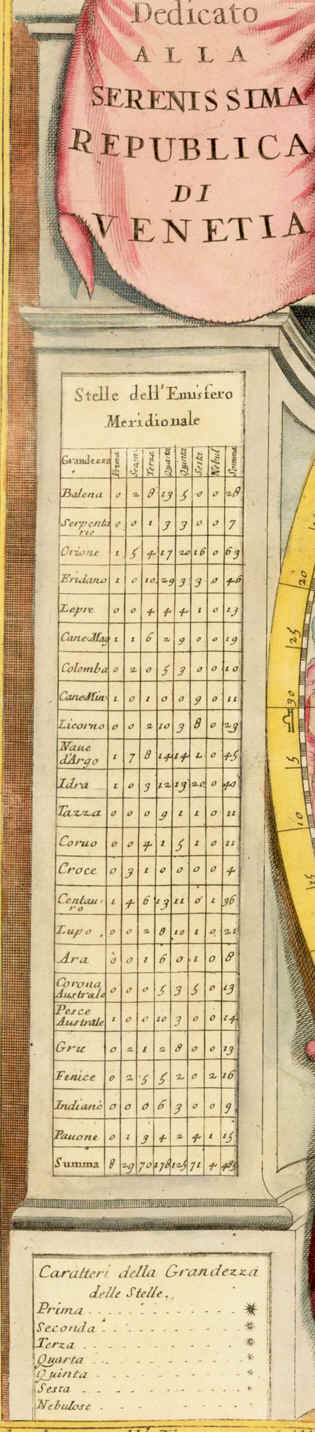 Dedicato
ALLA
SERENISSIMA
REPUBLICA
DI
VENETIA
Stelle dell'Emisfero
Meridionale
Grandezza Prima Secon: Terza Quarta Quinta Sesta Nebul Somma
Balena 0 2 8 13 5 0 0 28
Serpentario 0 0 1 3 3 0 0 7
Orione 1 5 4 17 20 16 0 63
Eridano 1 0 10 29 3 3 0 46
Lepre 0 0 4 4 4 1 0 13
Cane Mag 1 1 6 2 9 0 0 19
Colomba 0 2 0 5 3 0 0 10
Cane Min 1 0 1 0 0 9 0 11
Licorno 0 0 2 10 3 8 0 23
Naue
d'Argo 1 7 8 14 14 1 0 45
Idra 1 0 3 12 13 20 0 40
Tazza 0 0 0 9 1 1 0 11
Coruo 0 0 4 1 5 1 0 11
Croce 0 3 1 0 0 0 0 4
Centauro 1 4 6 13 11 0 1 36
Lupo 0 0 2 8 10 1 0 21
Ara 0 0 1 6 0 1 0 8
Corona
Australe 0 0 0 5 3 5 0 13
Pesce
Australe 1 0 0 10 3 0 0 14
Gru 0 2 1 2 8 0 0 13
Fenice 0 2 5 5 2 0 2 16
Indiano 0 0 0 6 3 0 0 9
Pauone 0 1 3 4 2 4 1 15
Summa 8 29 70 178 125 71 4 485
Caratteri della Grandezza
delle Stelle.
Prima
Seconda
Terza
Quarta
Quinta
Sesta
Nebulose
20
25
30
5
10